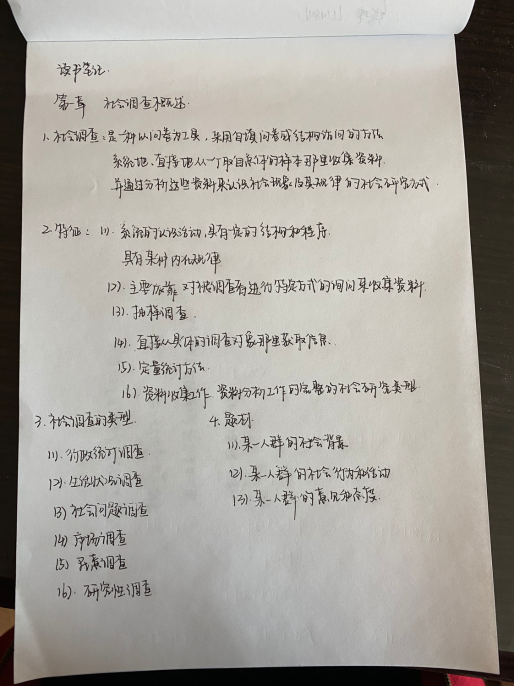 读书笔记.
第一章 社会调查概述.
1. 社会调查: 是一种以问卷为工具, 采用自填问卷或结构访问的方法
系统地、直接地从一个取自总体的样本那里收集资料.
并通过分析这些资料来认识社会现象及其规律的社会研究方式.
2. 特征: (1). 系统的认识活动, 具有一定的结构和程序.
具有某种内在规律
(2). 主要依靠对被调查者进行特定方式的询问来收集资料.
(3). 抽样调查.
(4). 直接从具体的调查对象那里获取信息.
(5). 定量统计方法.
(6). 资料收集工作、资料分析工作的完整的社会研究类型.
3. 社会调查的类型.
(1). 行政统计调查.
(2). 生活状况调查
(3) 社会问题调查
(4) 市场调查
(5) 民意调查
(6). 研究性调查
4. 题材.
(1). 某一人群的社会背景.
(2). 某一人群的社会行为和活动
(3). 某一人群的意见和态度.